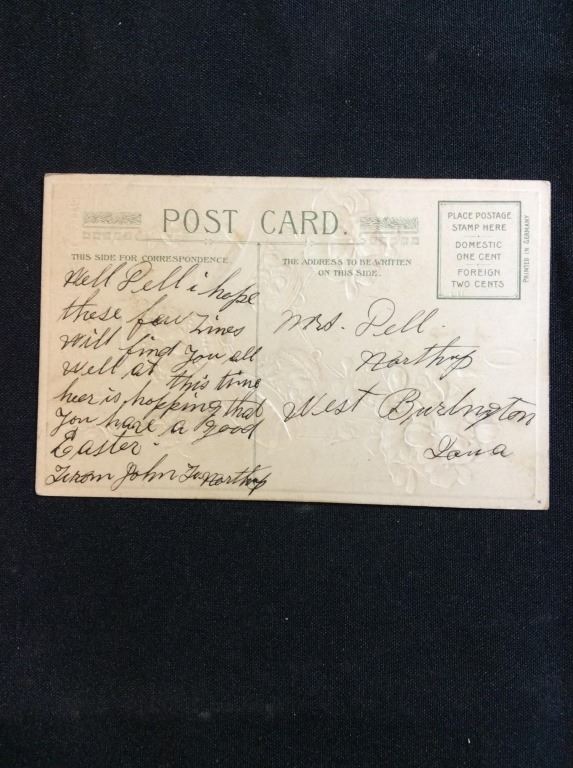 POST CARD.
THIS SIDE FOR CORRESPONDENCE
THE ADDRESS TO BE WRITTEN
ON THIS SIDE.
PLACE POSTAGE
STAMP HERE
DOMESTIC
ONE CENT
FOREIGN
TWO CENTS
PRINTED IN GERMANY
Well Dell i hope
these few Lines
Will find You all
Well at this time
heer is hopping that
You have a good
Easter.
From John Northup
Mrs. Dell
Northup
West Burlington
Iowa